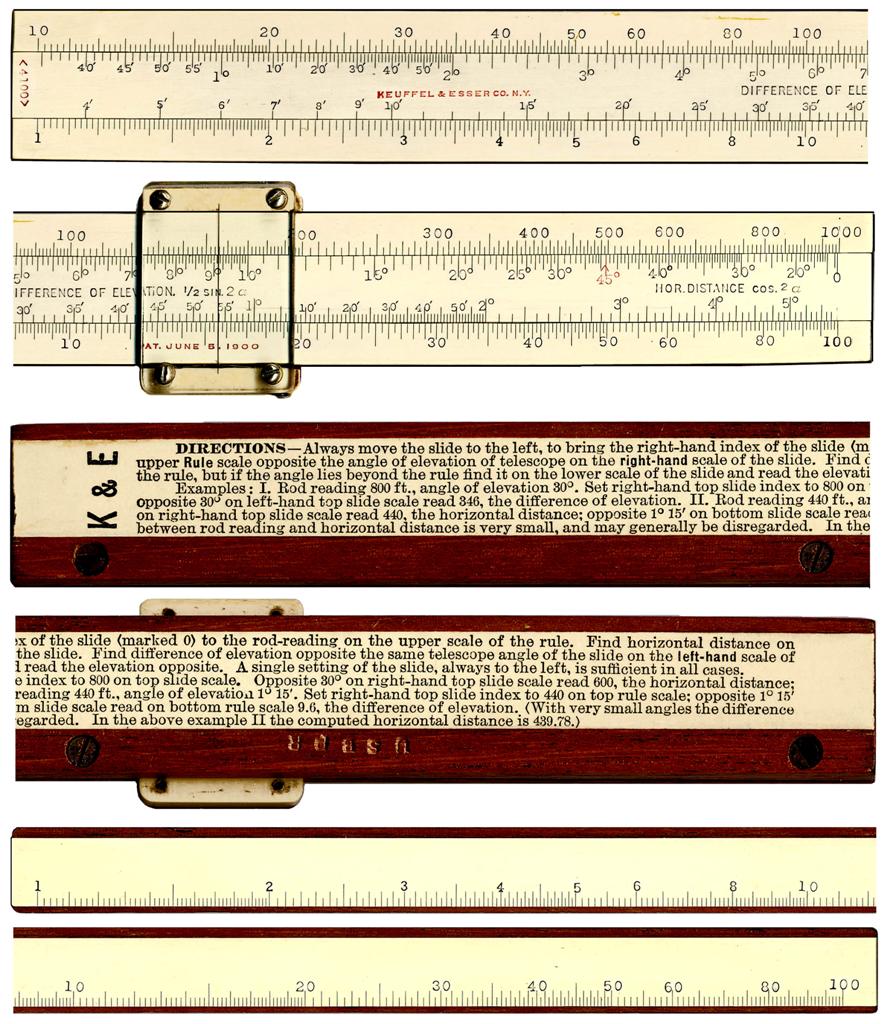 10 20 30 40 50 60 80 100
40' 45' 50' 55' 1° 10' 20' 30' 40' 50' 2° 3° 4° 5° 6° 7
<4100>
KEUFFEL & ESSER CO. N.Y.
DIFFERENCE OF ELE
4' 5' 6' 7' 8' 9' 10' 15' 20' 25' 30' 35' 40'
1 2 3 4 5 6 8 10
100 200 300 400 500 600 800 1000
5° 6° 7° 8° 9° 10° 15° 20° 25° 30° 45° 40° 30° 20° 0
IFFERENCE OF ELEVATION. 1/2 SIN. 2 α HOR. DISTANCE COS. 2 α
30' 35' 40' 45' 50' 55' 1° 10' 20' 30' 40' 50' 2° 3° 4° 5°
PAT. JUNE 5, 1900
10 20 30 40 50 60 80 100
K & E
DIRECTIONS—Always move the slide to the left, to bring the right-hand index of the slide (m
upper Rule scale opposite the angle of elevation of telescope on the right-hand scale of the slide. Find d
the rule, but if the angle lies beyond the rule find it on the lower scale of the slide and read the elevati
Examples: I. Rod reading 800 ft., angle of elevation 30°. Set right-hand top slide index to 800 on
opposite 30° on left-hand top slide scale read 346, the difference of elevation. II. Rod reading 440 ft., an
on right-hand top slide scale read 440, the horizontal distance; opposite 1° 15' on bottom slide scale read
between rod reading and horizontal distance is very small, and may generally be disregarded. In the
ex of the slide (marked 0) to the rod-reading on the upper scale of the rule. Find horizontal distance on
the slide. Find difference of elevation opposite the same telescope angle of the slide on the left-hand scale of
d read the elevation opposite. A single setting of the slide, always to the left, is sufficient in all cases.
e index to 800 on top slide scale. Opposite 30° on right-hand top slide scale read 600, the horizontal distance;
reading 440 ft., angle of elevation 1° 15'. Set right-hand top slide index to 440 on top rule scale; opposite 1° 15'
m slide scale read on bottom rule scale 9.6, the difference of elevation. (With very small angles the difference
egarded. In the above example II the computed horizontal distance is 439.78.)
1 2 3 4 5 6 8 10
10 20 30 40 50 60 80 100